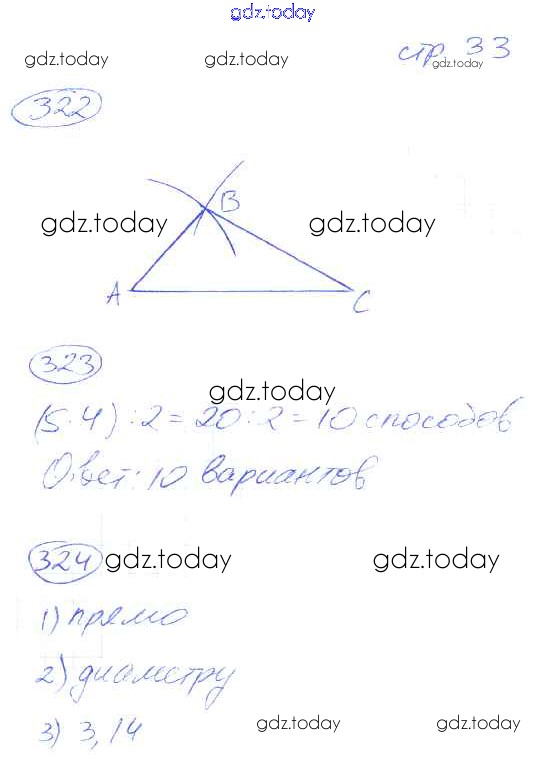 gdz.today
стр. 33
gdz.today gdz.today gdz.today
322
B
gdz.today gdz.today
A C
323
gdz.today
(5·4):2=20:2=10 способов
Ответ: 10 вариантов
324 gdz.today gdz.today
1) прямо
2) диаметру
3) 3,14
gdz.today gdz.today